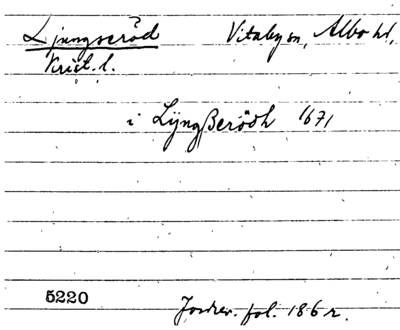 Ljungseröd Vitaby sn, Albo hd,
Krist. l.
i LÿngSerödh 1671
5220 Jordrev. fol. 186 r.